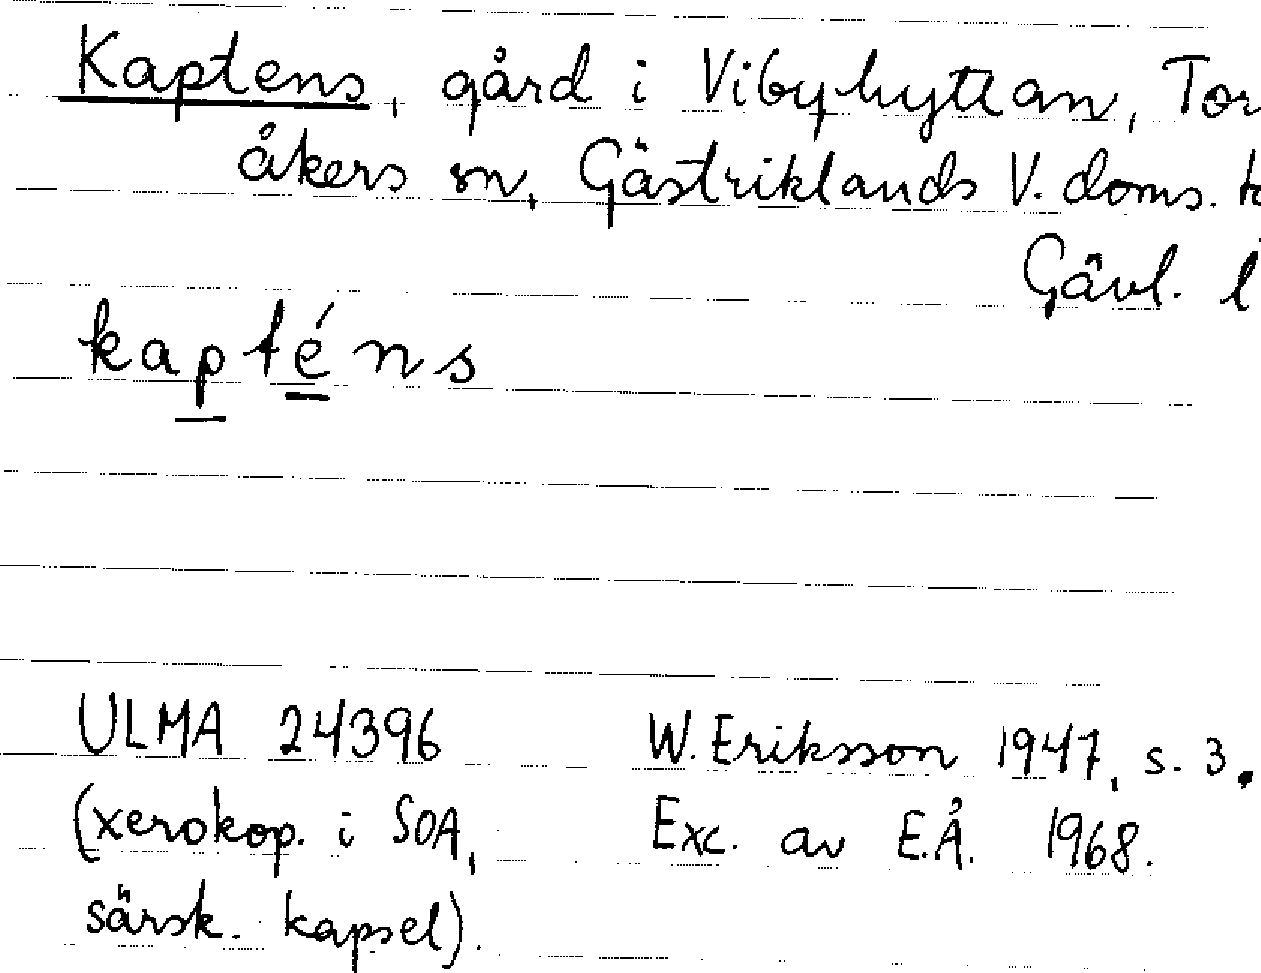 Kaptens, gård i Vibyhyttan, Tor
åkers sn, Gästriklands V. doms. t
Gävl. l
kapténs
ULMA 24396 W. Eriksson 1947, s. 3.
(xerokop. i SOA, Exc. av E.Å. 1968.
särsk. kapsel).